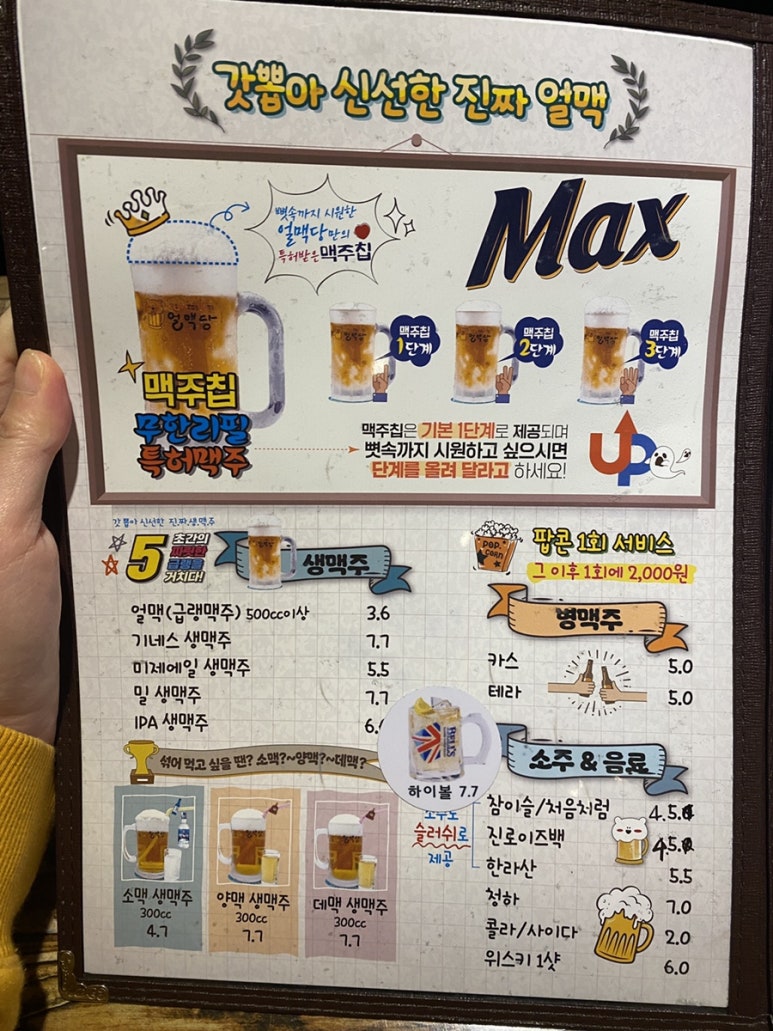 갓뽑아 신선한 진짜 얼맥
뼛속까지 시원한
얼맥당만의
특허받은 맥주칩
Max
얼맥당
맥주칩
무한리필
특허맥주
맥주칩
1단계
맥주칩
2단계
맥주칩
3단계
맥주칩은 기본 1단계로 제공되며
뼛속까지 시원하고 싶으시면
단계를 올려 달라고 하세요!
UP
갓 뽑아 신선한 진.짜.생.맥.주
5 초간의
짜릿한
급랭을
거치다!
생맥주
얼맥(급랭맥주) 500cc이상 3.6
기네스 생맥주 7.7
미제에일 생맥주 5.5
밀 생맥주 7.7
IPA 생맥주 6.
섞어 먹고 싶을 땐? 소맥?~양맥?~데맥?
소맥 생맥주
300cc
4.7
양맥 생맥주
300cc
7.7
데맥 생맥주
300cc
7.7
POP
CORN
팝콘 1회 서비스
그 이후 1회에 2,000원
병맥주
카스 5.0
테라 5.0
BELL'S
하이볼 7.7
소주 & 음료
슬러쉬로
제공
참이슬/처음처럼 4.5
진로이즈백 4.5
한라산 5.5
청하 7.0
콜라/사이다 2.0
위스키 1샷 6.0